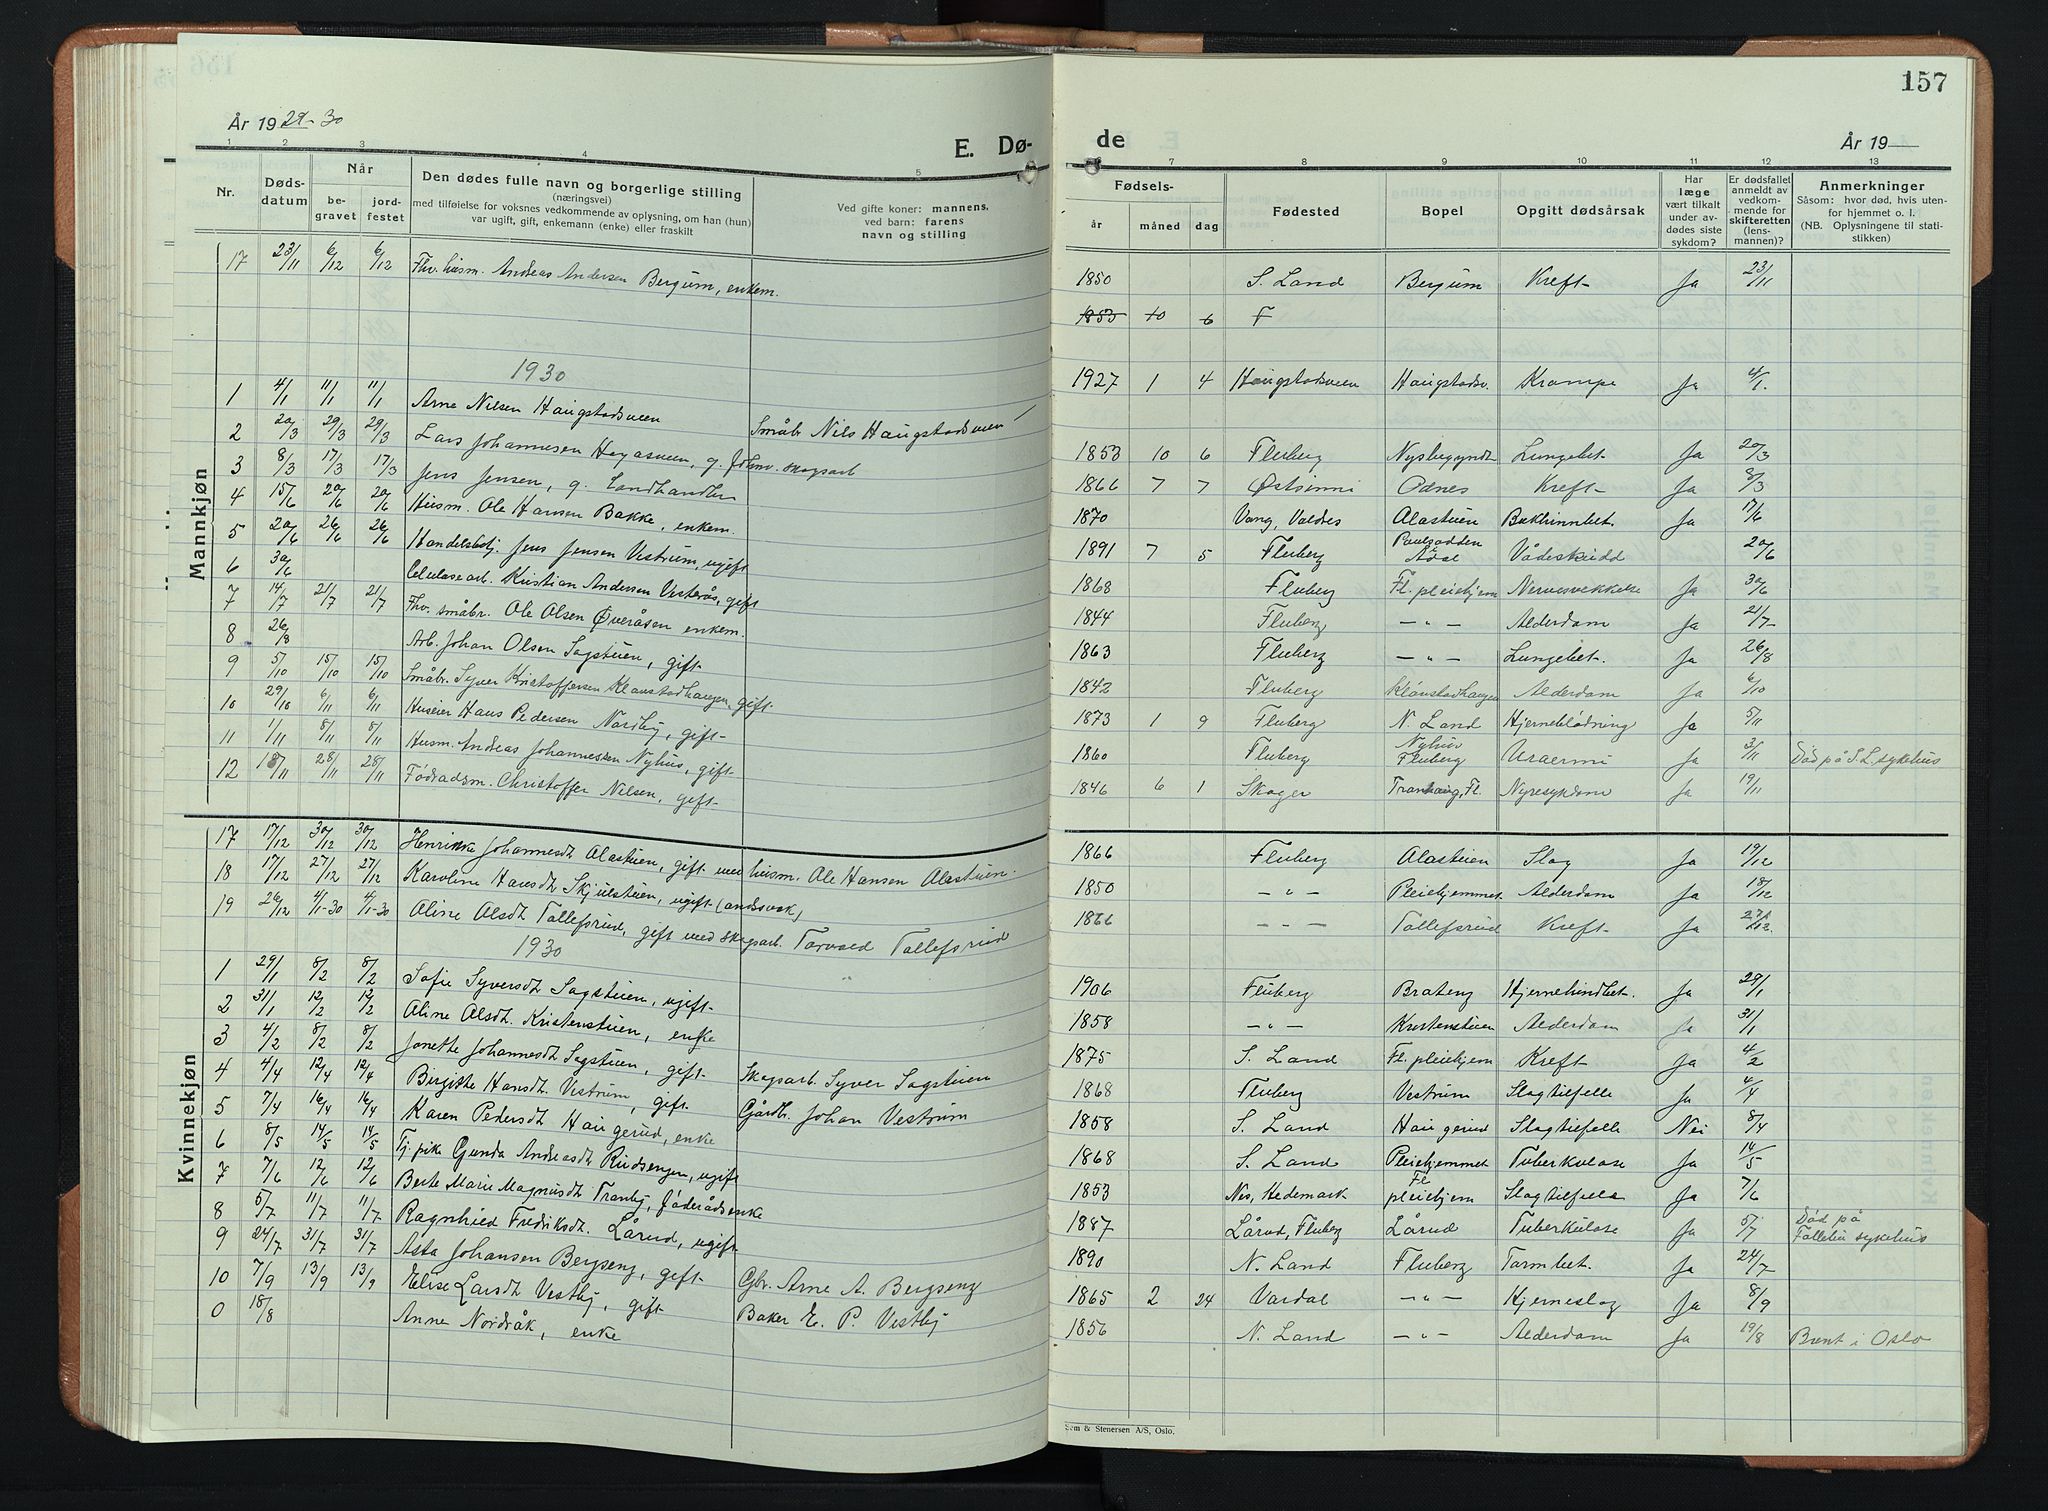 157
År 19 29-30
E. Dø-
de
År 19
1 2 3 4 5
6 7 8 9 10 11 12 13
Nr. Dødsdatum Når begravet jordfestet
Den dødes fulle navn og borgerlige stilling
(næringsvei)
med tilføielse for voksnes vedkommende av oplysning, om han (hun)
var ugift, gift, enkemann (enke) eller fraskilt
Ved gifte koner: mannens,
ved barn: farens
navn og stilling
Fødsels- år måned dag
Fødested
Bopel
Opgitt dødsårsak
Har læge vært tilkalt under avdødes siste sykdom?
Er dødsfallet anmeldt av vedkommende for skifteretten (lensmannen)?
Anmerkninger
Såsom: hvor død, hvis utenfor hjemmet o. l.
(NB. Oplysningene til statistikken)
Mannkjøn
17 23/11 6/12 6/12 Fhv. husm. Andreas Andersen Bergum, enkem. 1850 S. Land Bergum Kreft Ja 23/11
1853 10 6 F
1930
1 4/1 11/1 11/1 Arne Nilsen Haugstadsveen Småbr. Nils Haugstadsveen 1927 1 4 Haugstadsveen Haugstadsv. Krampe Ja 4/1.
2 20/3 29/3 29/3 Lars Johannesen Hagasveen, g. skogsarb 1853 10 6 Fluberg Lungebet. Ja 20/3
3 8/3 17/3 17/3 Jens Jensen, g. Landhandler 1866 7 7 Østsinni Odnes Kreft Ja 8/3
4 15/6 20/6 20/6 Husm. Ole Hansen Bakke, enkem. 1870 Vang, Valdres Alastuen Bukhinnbet. Ja 17/6
5 20/6 26/6 26/6 Handelsbetj. Jens Jensen Vestrum, ugift 1891 7 5 Fluberg Ådal Vådeskudd 20/6
6 30/6 Celulosearb. Kristian Andersen Vesterås, gift 1868 Fluberg Fl. pleiehjem Nervesvekkelse Ja 30/6
7 14/7 21/7 21/7 Fhv. småbr. Ole Olsen Øveråsen enkem. 1844 Fluberg — " — Alderdom Ja 21/7
8 26/8 Arb. Johan Olsen Sagstuen, gift 1863 Fluberg — " — Lungebet. Ja 26/8
9 5/10 15/10 15/10 Småbr. Syver Kristoffersen Klaustadhaugen, gift 1842 Fluberg Klaustadhaugen Alderdom Ja 6/10
10 29/10 6/11 6/11 Huseier Hans Pedersen Nordby, gift 1873 1 9 Fluberg N. Land Hjerneblødning Ja 5/11
11 1/11 8/11 8/11 Husm. Andreas Johannessen Nyhus, gift 1860 Fluberg Nyhus Fluberg Uraemi Ja 3/11 Död på S. L. sykehus
12 18/11 28/11 28/11 Føderådsm. Christoffer Nilsen, gift 1846 6 1 Skoger Tranhaug, Fl. Nyresykdom Ja 19/11
Kvinnekjøn
17 17/12 30/12 30/12 Henrikke Johannesdt Alastuen, gift med husm. Ole Hansen Alastuen. 1866 Fluberg Alastuen Slag Ja 19/12
18 17/12 27/12 27/12 Karoline Hansdt Skjulstuen, ugift (andssvak) 1850 — " — Pleiehjemmet Alderdom Ja 18/12
19 26/12 4/1-30 4/1-30 Aline Olsdt Tollefsrud, gift med skogsarb. Torvald Tollefsrud 1866 — " — Tollefsrud Kreft Ja 27/12.
1930
1 29/1 8/2 8/2 Sofie Syversdt Sagstuen, ugift 1906 Fluberg Brateng Hjernehindbet. Ja 29/1
2 31/1 12/2 12/2 Aline Olsdt. Kristenstuen, enke 1858 — " — Kristenstuen Alderdom Ja 31/1
3 4/2 8/2 8/2 Jonette Johannesdt Sagstuen, gift Skogsarb. Syver Sagstuen 1875 S. Land Fl. pleiehjem Kreft Ja 4/2
4 4/4 12/4 12/4 Bergitte Hansdt Vestrum, gift Gårdbr. Johan Vestrum 1868 Fluberg Vestrum Slagtilfelle Ja 4/4
5 7/4 16/4 16/4 Karen Pedersdt Haugerud, enke 1858 S. Land Haugerud Slagtilfelle Nei 8/4
6 8/5 14/5 14/5 Tj. pike Gunda Andreasdt Rudsengen, ugift 1868 S. Land Pleiehjemmet Tuberkulose Ja 14/5
7 7/6 12/6 12/6 Berte Marie Magnusdt Tranby, føderådsenke 1853 Nes, Hedemark Fl pleiehjem Slagtilfelle Ja 7/6
8 5/7 11/7 11/7 Ragnhild Fredriksdt. Lårud, ugift 1887 Lårud, Fluberg Lårud Tuberkulose Ja 5/7 Död på sykehus
9 24/7 31/7 31/7 Asta Johansen Bergseng, gift Gbr. Arne A. Bergseng 1890 N. Land Fluberg Tarmbet. Ja 24/7
10 7/9 13/9 13/9 Elise Larsdt Vestby, gift Baker E. P. Vestby 1865 2 24 Vardal — " — Hjerneslag Ja 8/9
0 18/8 Anne Nordråk, enke 1856 N. Land — " — Alderdom Ja 19/8 Brent i Oslo
Sem & Stenersen A/S, Oslo.